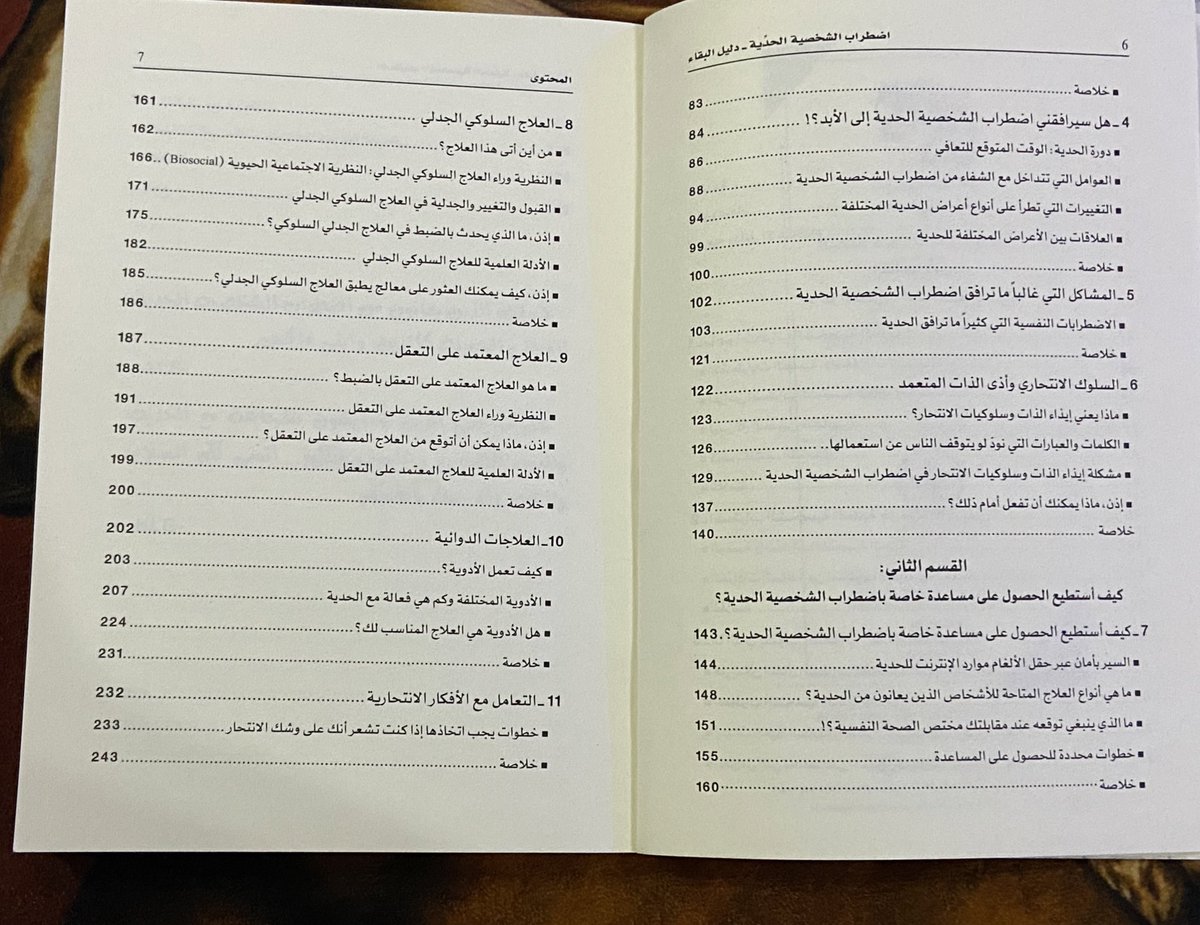 6
اضطراب الشخصية الحدّية ـ دليل البقاء
■ خلاصة ........ 83
4 ـ هل سيرافقني اضطراب الشخصية الحدية إلى الأبد؟! ........ 84
■ دورة الحدية: الوقت المتوقع للتعافي ........ 86
■ العوامل التي تتداخل مع الشفاء من اضطراب الشخصية الحدية ........ 88
■ التغييرات التي تطرأ على أنواع أعراض الحدية المختلفة ........ 94
■ العلاقات بين الأعراض المختلفة للحدية ........ 99
■ خلاصة ........ 100
5 ـ المشاكل التي غالباً ما ترافق اضطراب الشخصية الحدية ........ 102
■ الاضطرابات النفسية التي كثيراً ما ترافق الحدية ........ 103
■ خلاصة ........ 121
6 ـ السلوك الانتحاري وأذى الذات المتعمد ........ 122
■ ماذا يعني إيذاء الذات وسلوكيات الانتحار؟ ........ 123
■ الكلمات والعبارات التي نودّ لو يتوقف الناس عن استعمالها.. ........ 126
■ مشكلة إيذاء الذات وسلوكيات الانتحار في اضطراب الشخصية الحدية ........ 129
■ إذن، ماذا يمكنك أن تفعل أمام ذلك؟ ........ 137
خلاصة ........ 140
القسم الثاني:
كيف أستطيع الحصول على مساعدة خاصة باضطراب الشخصية الحدية؟
7 ـ كيف أستطيع الحصول على مساعدة خاصة باضطراب الشخصية الحدية؟. 143
■ السير بأمان عبر حقل الألغام موارد الإنترنت للحدية ........ 144
■ ما هي أنواع العلاج المتاحة للأشخاص الذين يعانون من الحدية؟ ........ 148
■ ما الذي ينبغي توقعه عند مقابلتك مختص الصحة النفسية؟! ........ 151
■ خطوات محددة للحصول على المساعدة ........ 155
■ خلاصة ........ 160
المحتوى
7
8 ـ العلاج السلوكي الجدلي ........ 161
■ من أين أتى هذا العلاج؟ ........ 162
■ النظرية وراء العلاج السلوكي الجدلي: النظرية الاجتماعية الحيوية (Biosocial) .. 166
■ القبول والتغيير والجدلية في العلاج السلوكي الجدلي ........ 171
■ إذن، ما الذي يحدث بالضبط في العلاج الجدلي السلوكي؟ ........ 175
■ الأدلة العلمية للعلاج السلوكي الجدلي ........ 182
■ إذن، كيف يمكنك العثور على معالج يطبق العلاج السلوكي الجدلي؟ ........ 185
■ خلاصة ........ 186
9 ـ العلاج المعتمد على التعقل ........ 187
■ ما هو العلاج المعتمد على التعقل بالضبط؟ ........ 188
■ النظرية وراء العلاج المعتمد على التعقل ........ 191
■ إذن، ماذا يمكن أن أتوقع من العلاج المعتمد على التعقل؟ ........ 197
■ الأدلة العلمية للعلاج المعتمد على التعقل ........ 199
■ خلاصة ........ 200
10 ـ العلاجات الدوائية ........ 202
■ كيف تعمل الأدوية؟ ........ 203
■ الأدوية المختلفة وكم هي فعالة مع الحدية ........ 207
■ هل الأدوية هي العلاج المناسب لك؟ ........ 224
■ خلاصة ........ 231
11 ـ التعامل مع الأفكار الانتحارية ........ 232
■ خطوات يجب اتخاذها إذا كنت تشعر أنك على وشك الانتحار ........ 233
■ خلاصة ........ 243